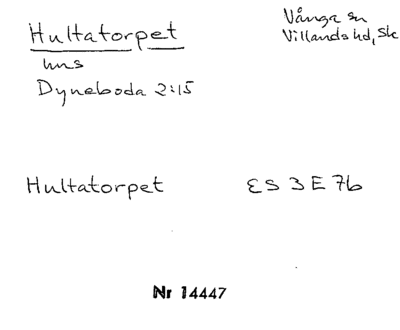 Hultatorpet
hus
Dyneboda 2:15
Vånga sn
Villands hd, Sk
Hultatorpet
ES 3 E 7b
Nr 14447